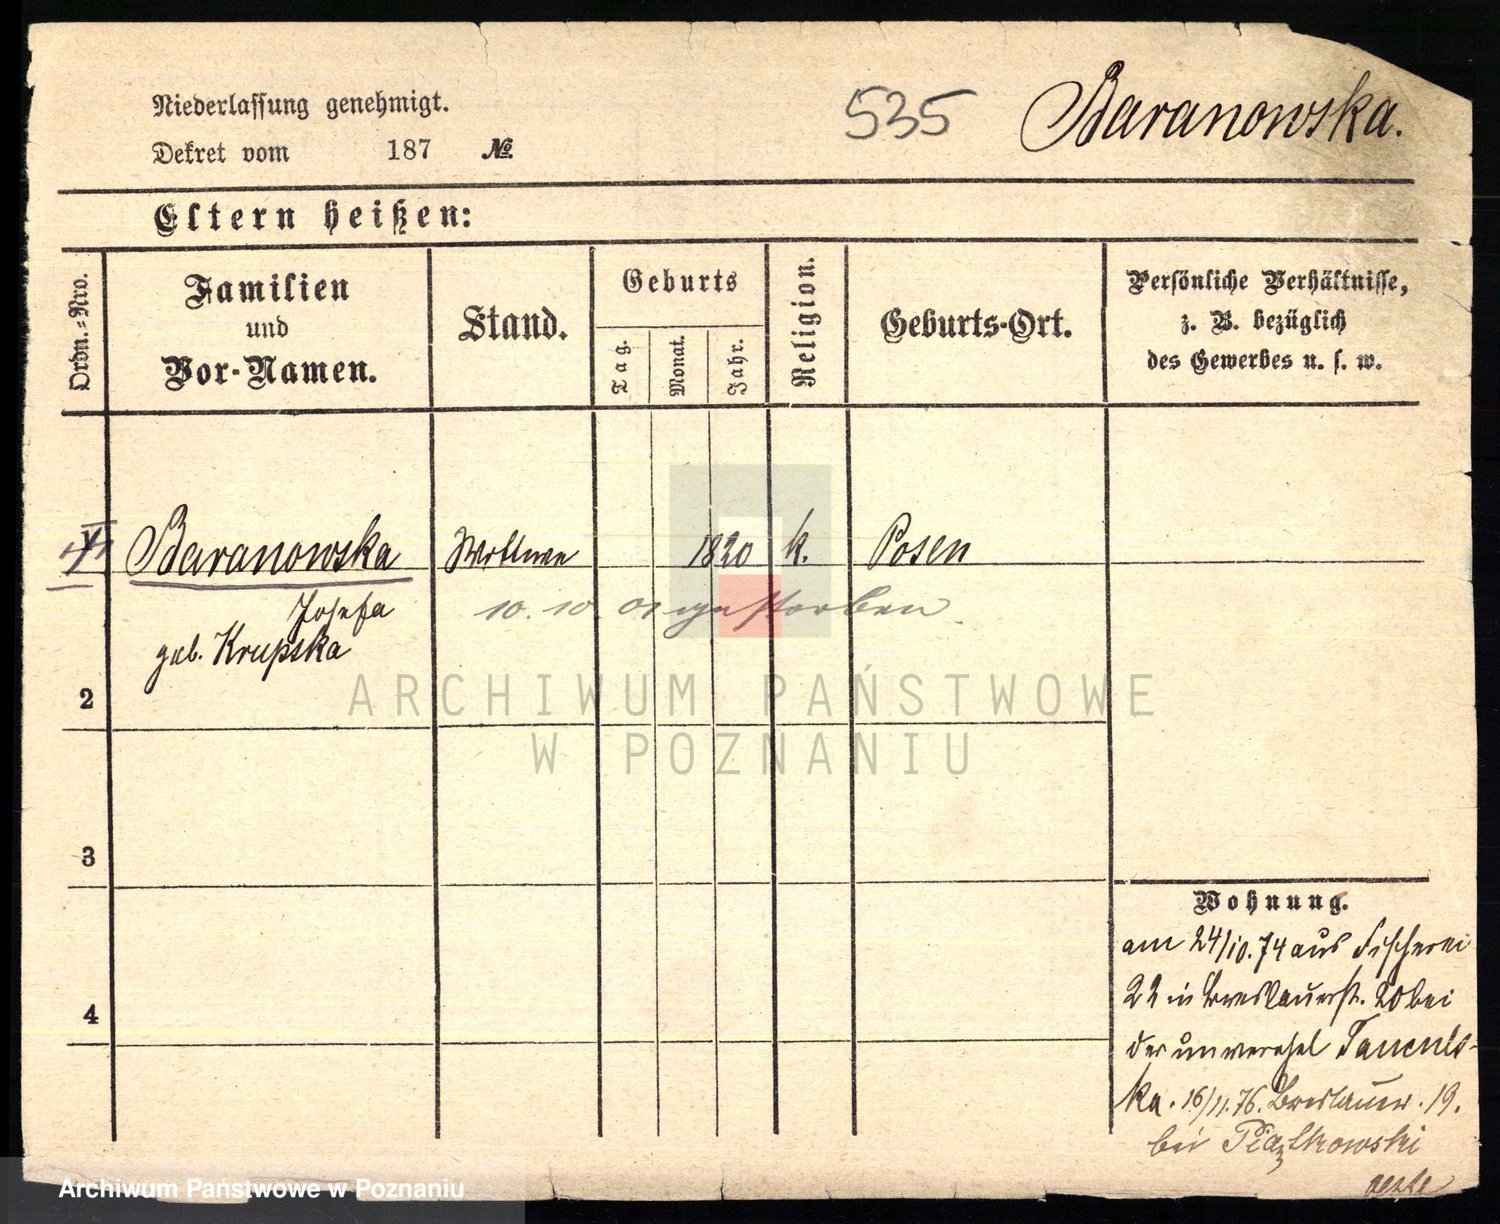 Niederlassung genehmigt.
535
Baranowska.
Dekret vom 187 №.
Eltern heißen:
Ordn.-Nro.
Familien
und
Vor-Namen.
Stand.
Geburts
Tag.
Monat.
Jahr.
Religion.
Geburts-Ort.
Persönliche Verhältnisse,
z. B. bezüglich
des Gewerbes u. s. w.
Baranowska Wittwe 1820 k. Posen
Josefa 10. 10. 01 gestorben.
geb. Krupska
2
ARCHIWUM PAŃSTWOWE
W POZNANIU
3
4
Wohnung.
am 24/10.74 aus Fischerei
22 in Breslauerst. 20 bei
der unverehel
ka. 16/11.76. Breslauer. 19.
bei Piątkowski
Archiwum Państwowe w Poznaniu